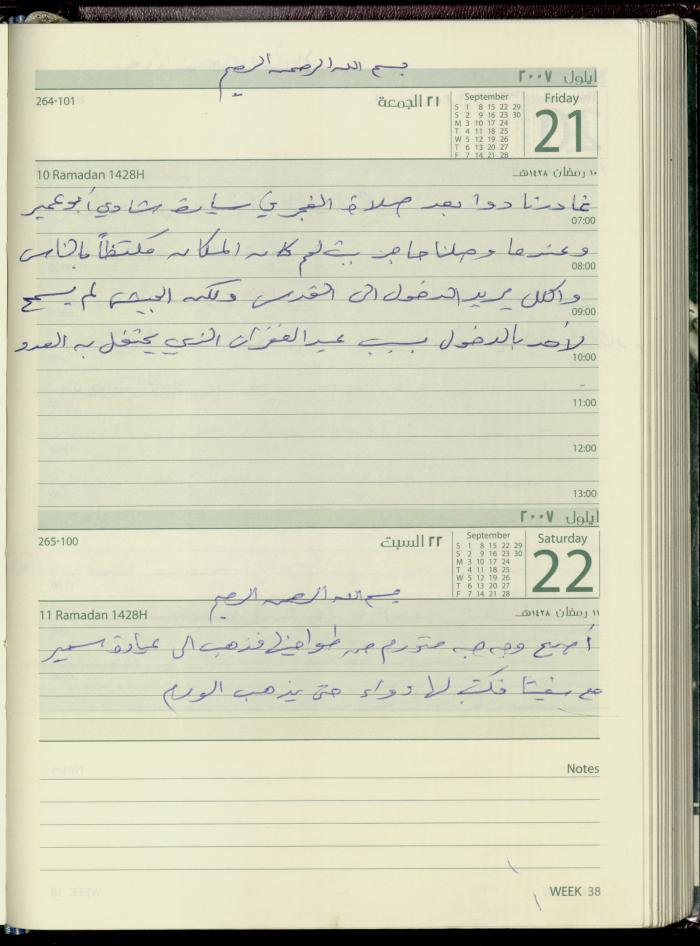 بسم الله الرحمن الرحيم
أيلول ٢٠٠٧
264•101
٢١ الجمعة
September
S 1 8 15 22 29
S 2 9 16 23 30
M 3 10 17 24
T 4 11 18 25
W 5 12 19 26
T 6 13 20 27
F 7 14 21 28
Friday
21
10 Ramadan 1428H
١٠ رمضان ١٤٢٨هـ
غادرنا دورا بعد صلاة الفجر في سيارة شادي أبو عمير
07:00
وعندما وصلنا حاجز بيت لحم كان المكان مكتظاً بالناس
08:00
والكل يريد الدخول الى القدس ولكن الجيش لم يسمح
09:00
لأحد بالدخول بسبب عيد الغفران الذي يحتفل به العدو
10:00
11:00
12:00
13:00
أيلول ٢٠٠٧
265•100
٢٢ السبت
September
S 1 8 15 22 29
S 2 9 16 23 30
M 3 10 17 24
T 4 11 18 25
W 5 12 19 26
T 6 13 20 27
F 7 14 21 28
Saturday
22
بسم الله الرحمن الرحيم
11 Ramadan 1428H
١١ رمضان ١٤٢٨هـ
أصبح وجه متورم من طواحينها فذهب الى عيادة سمير
مع فكتب لها دواء حتى يذهب الورم
Notes
WEEK 38